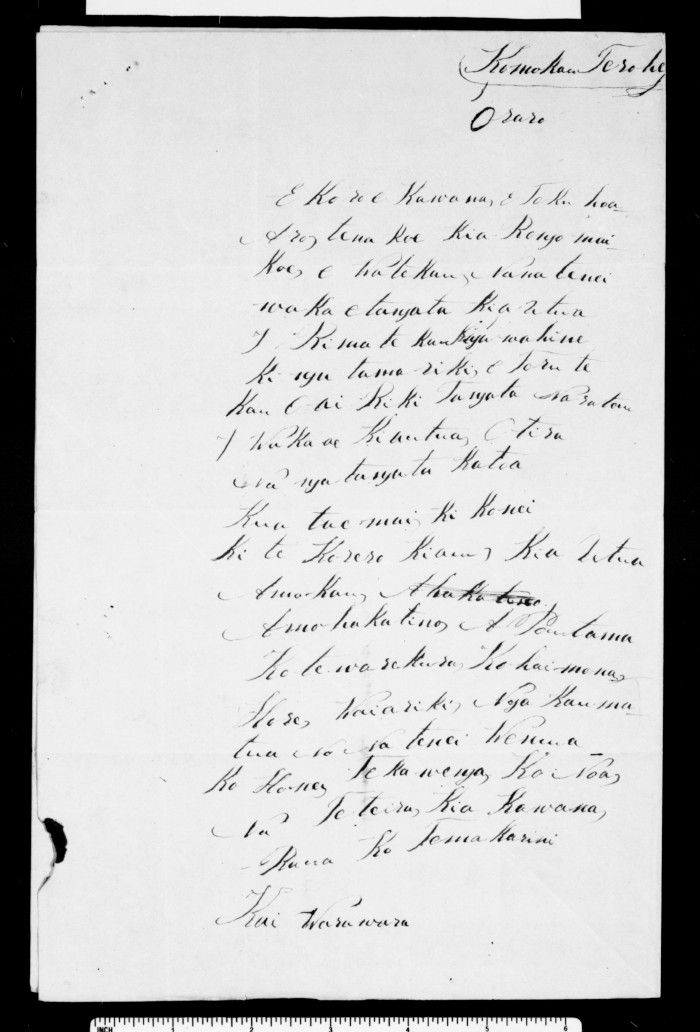 Komokau Terohe
Oraro
E Koro e Kawana, e Toku hoa
Aro, tena koe Kia Rongo mai
Koe, e Watekau, Nana tenei
waka e tangata Kia Utua
I Rimate kau Kiga wahine
Ki nga tama riki, e Toru te
Kau e ai Riki Tangata Na ratou
I Wakaae Kiautua, Otira
Na nga tangata Katoa
Kua tae mai, ki Konei
Ki te Korero Kiau, Kia Utua
Amokau,
Amohakatino, A Poutama
Ko te warekura, Ko haimona,
Hore, Waiariki, Nga Kauma-
tua No Na tenei Wenua
Ko Hone, Te Kawenga, Ko Noa,
Na Te teira, Kia Kawana,
Raua Ko Temakarini
Kai Warawara
INCH 1 2 3 4 5 6